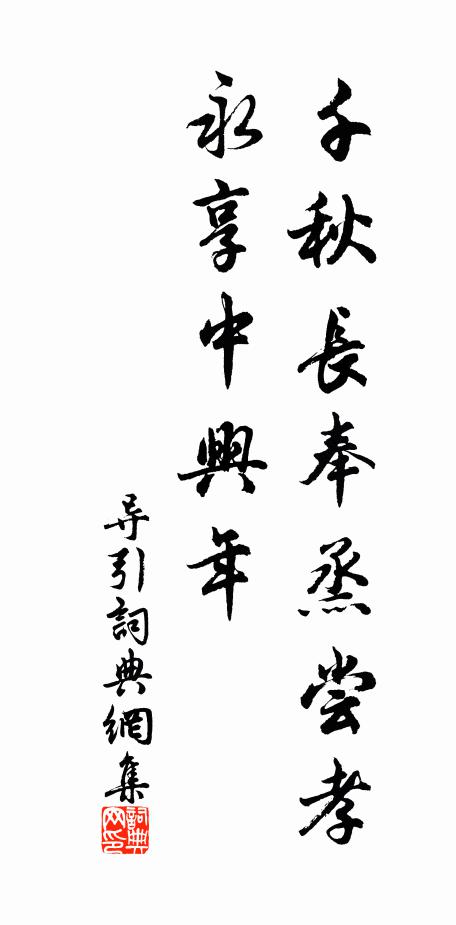 千秋長奉蒸尝孝
永享中興年
导引詞典網集
詞典网印